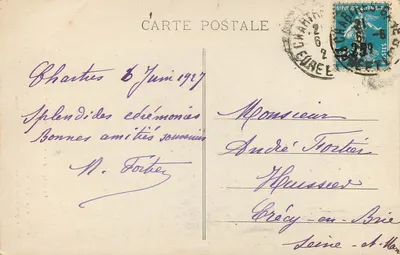 CARTE POSTALE
Chartres 6 Juin 1927
Splendides cérémonies
Bonnes amitiés souvenirs
A. Fortier
Monsieur
André Fortier
Huissier
Crécy-en-Brie
Seine-et-Marne
CHARTRES
EURE